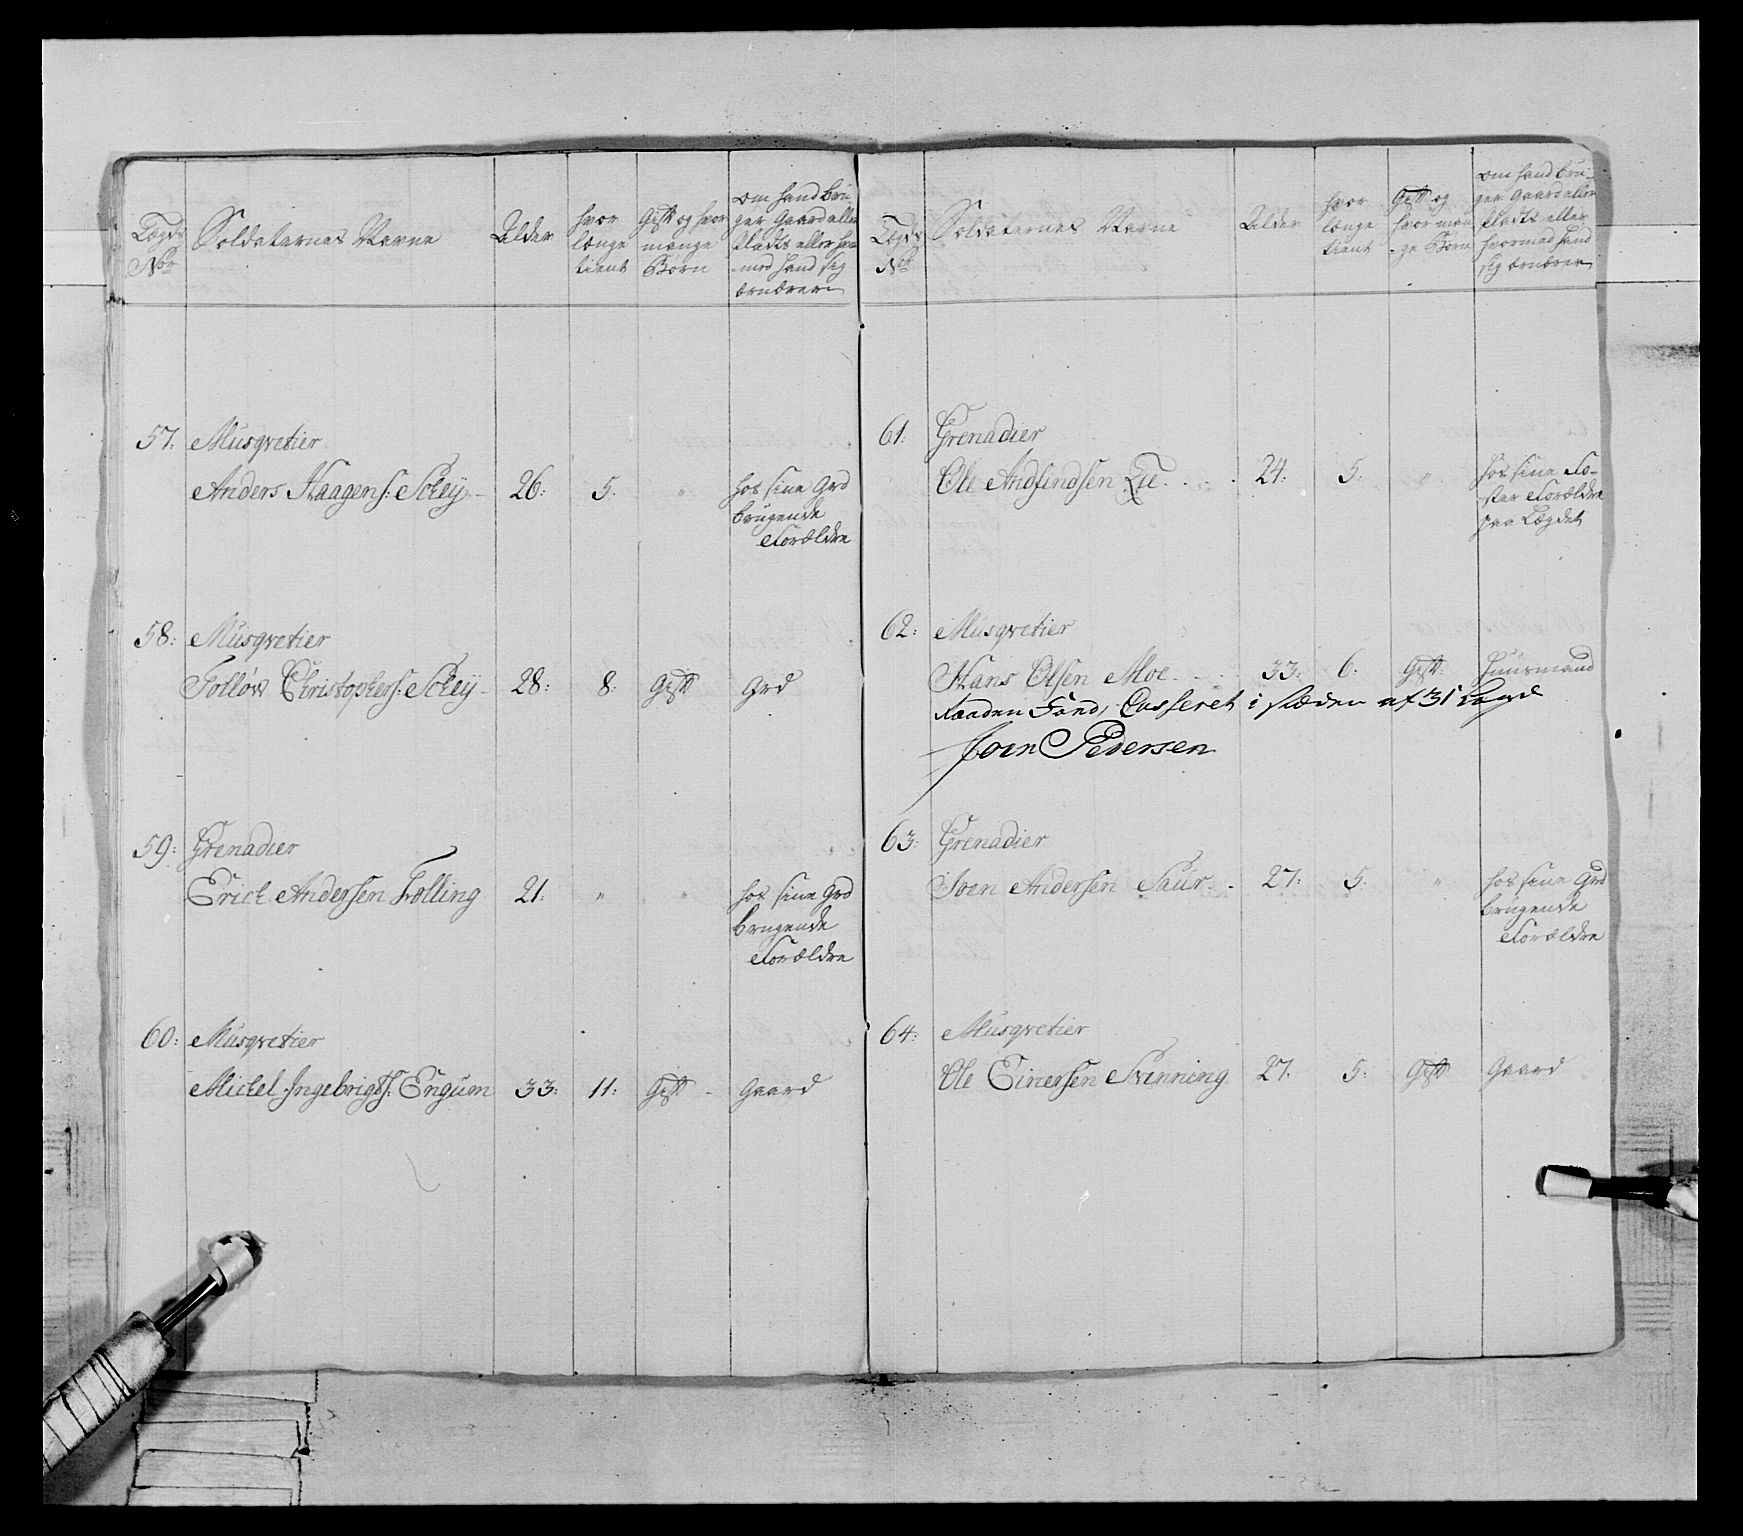 Lægds Nor
Soldaternes Navne
Alder
hvor
længe
tient
Gift og hvor
mange
Børn
om hand bru-
ger Gaard eller
Pladts eller hvor-
med hand sig
ernærer
57: Musqvetier
Anders Haagens: Schey 26: 5. " hos sine Grd
brugende
Forældre
58: Musqvetier
Olløw Christophers: Schey 28: 8: Gift Grd
59: Grenadier
Erich Andersen Følling 21: " " hos sine Grd
brugende
Forældre
60: Musqvetier
Michel Ingebrigts: Engum 33: 11: Gift Gaard
Lægds Nor
Soldaternes Navne
Alder
hvor
længe
tient
Gift og
hvor man-
ge Børn
om hand bru-
ger Gaard eller
Pladts eller
hvormed hand
sig ernærer
61: Grenadier
Ole Andfindsen Lie 24: 5: " hos sine Fo-
ster Forældre
paa Lægdet
62: Musqvetier
Hans Olsen Moe 33: 6: Gift Huusmand
Casseret i stæden af 31 Lægd
Joen Pedersen
63: Grenadier
Joen Andersen Saur 27: 5: " hos sine Grd
brugende
Forældre
64: Musqvetier
Ole Einersen Svinning 27: 5: Gift Gaard